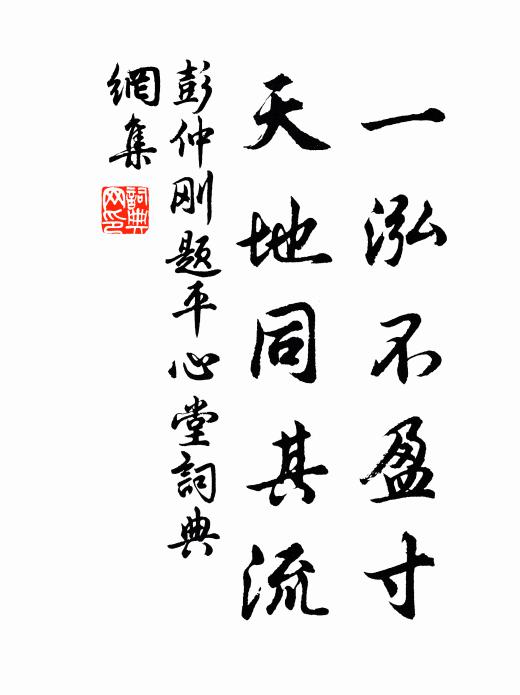 一泓不盈寸
天地同其流
彭仲刚题平心堂詞典
網集
詞典
网印